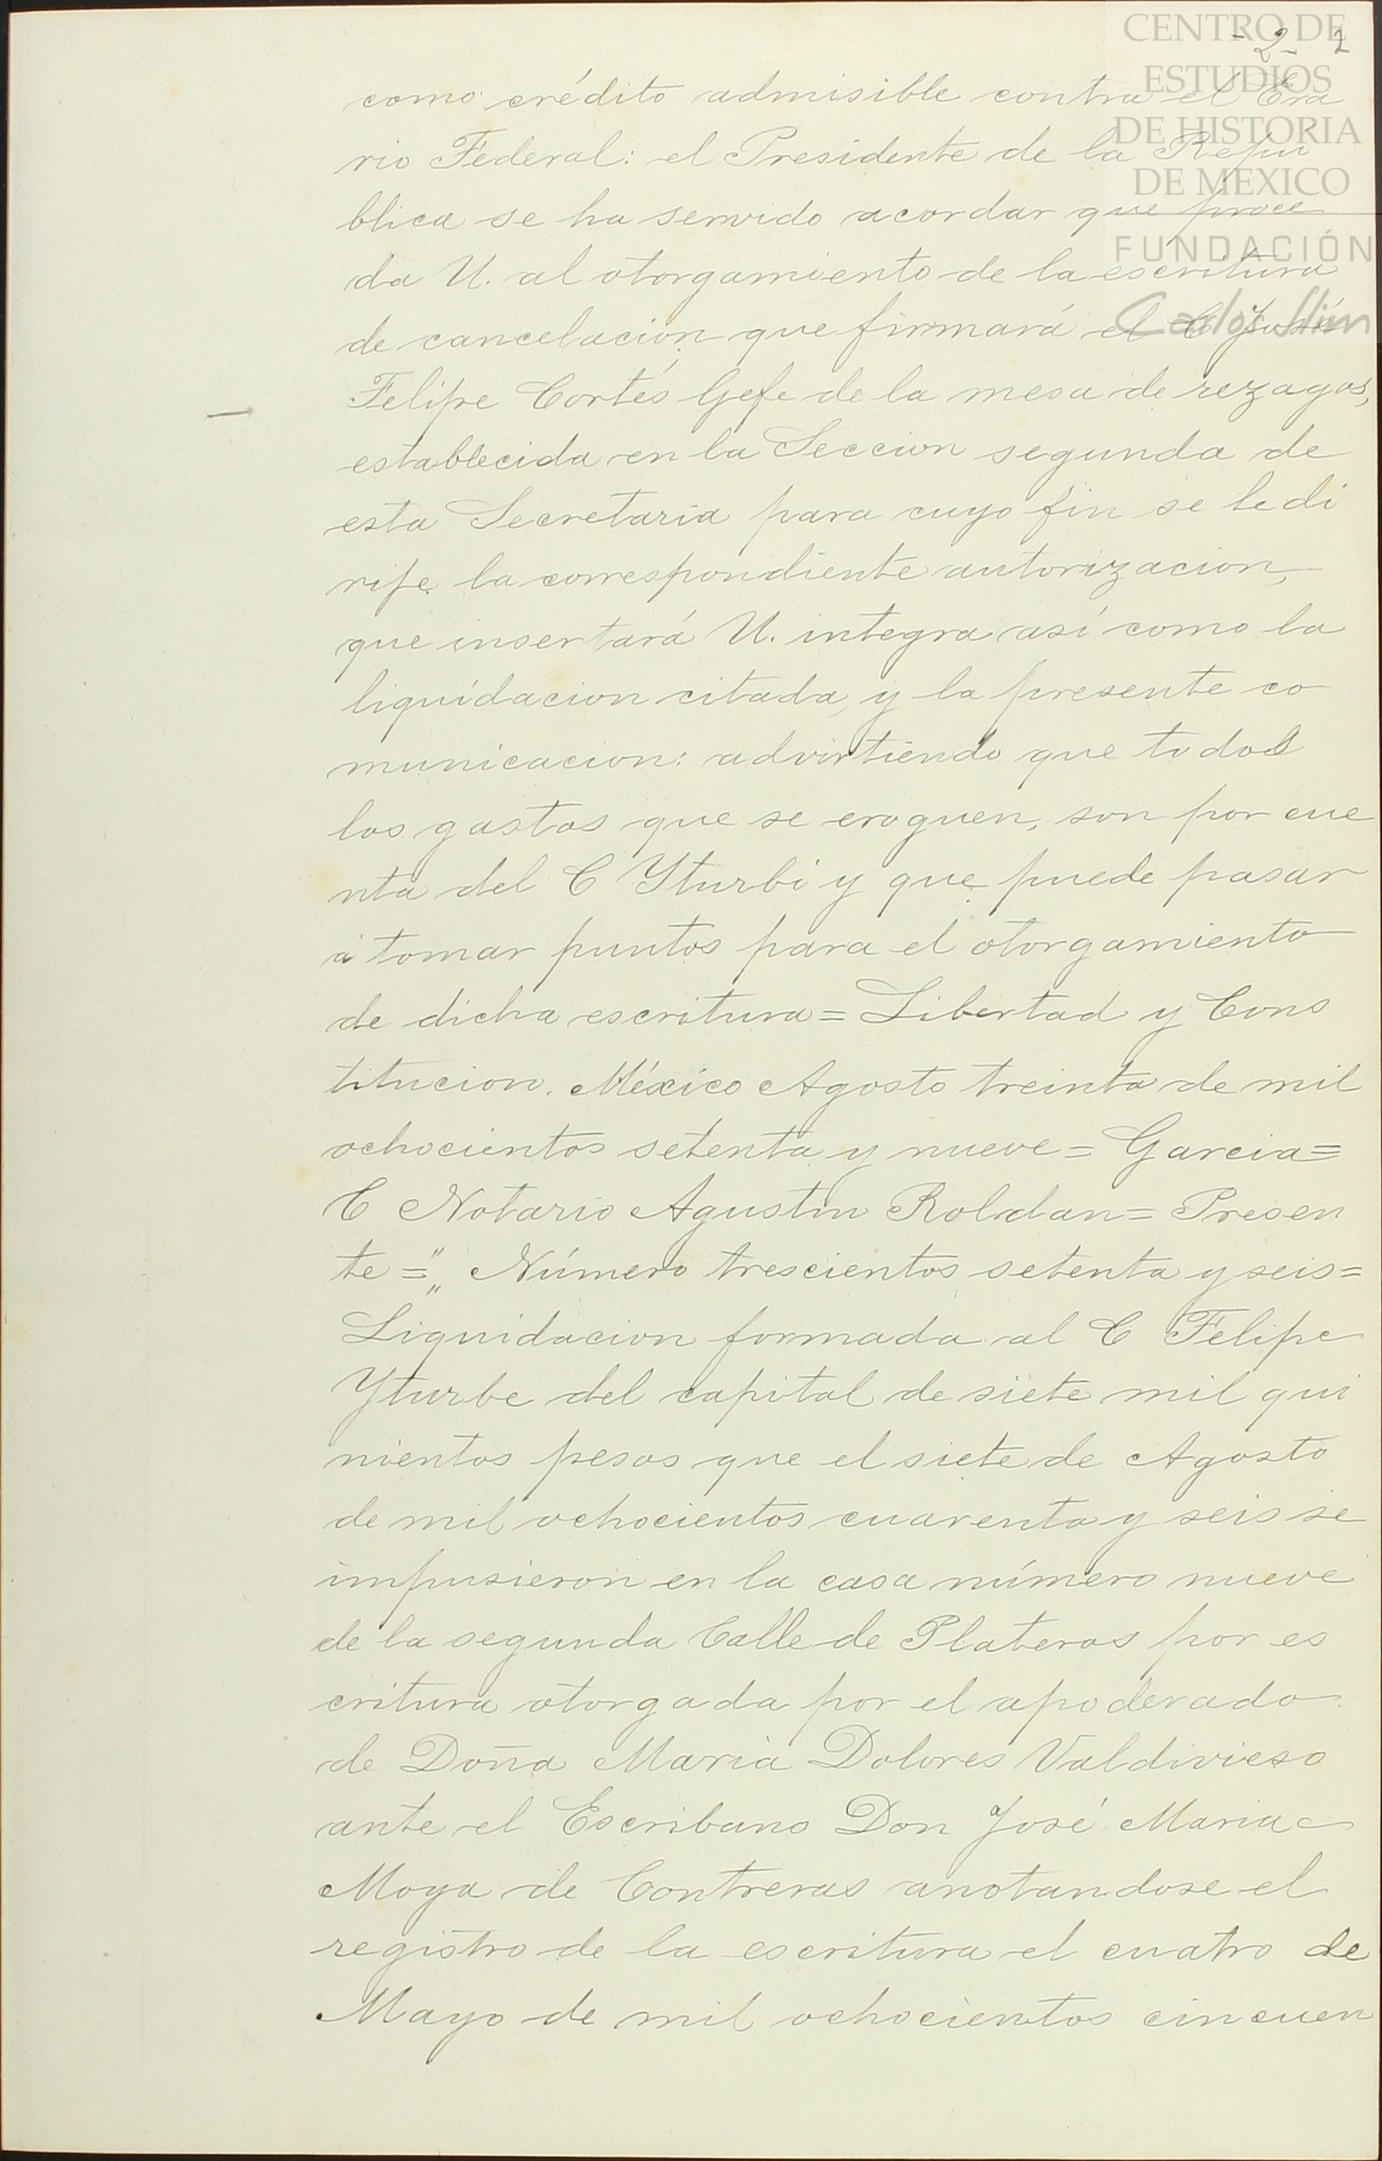 CENTRO DE
ESTUDIOS
DE HISTORIA
DE MEXICO
FUNDACIÓN
Carlos Slim
-2- 2
como crédito admisible contra el Era
rio Federal: el Presidente de la Repú
blica se ha servido acordar que proce
da U. al otorgamiento de la escritura
de cancelación que firmará el C José
Felipe Cortés Gefe de la mesa de rezagos,
establecida en la Seccion segunda de
esta Secretaría para cuyo fin se le di
rije la correspondiente autorizacion,
que insertará U. integra así como la
liquidacion citada, y la presente co
municacion: advirtiendo que todos
los gastos que se eroguen, son por cue
nta del C Yturbi y que puede pasar
á tomar puntos para el otorgamiento
de dicha escritura = Libertad y Cons
titucion. México Agosto treinta de mil
ochocientos setenta y nueve = Garcia =
C Notario Agustin Roldan = Presen
te = " „ Número trescientos setenta y seis =
Liquidacion formada al C Felipe
Yturbe del capital de siete mil qui
nientos pesos que el siete de Agosto
de mil ochocientos cuarenta y seis se
impusieron en la casa número nueve
de la segunda Calle de Plateros por es
critura otorgada por el apoderado
de Doña María Dolores Valdivieso
ante el Escribano Don José Maria
Moya de Contreras anotandose el
registro de la escritura el cuatro de
Mayo de mil ochocientos cincuen